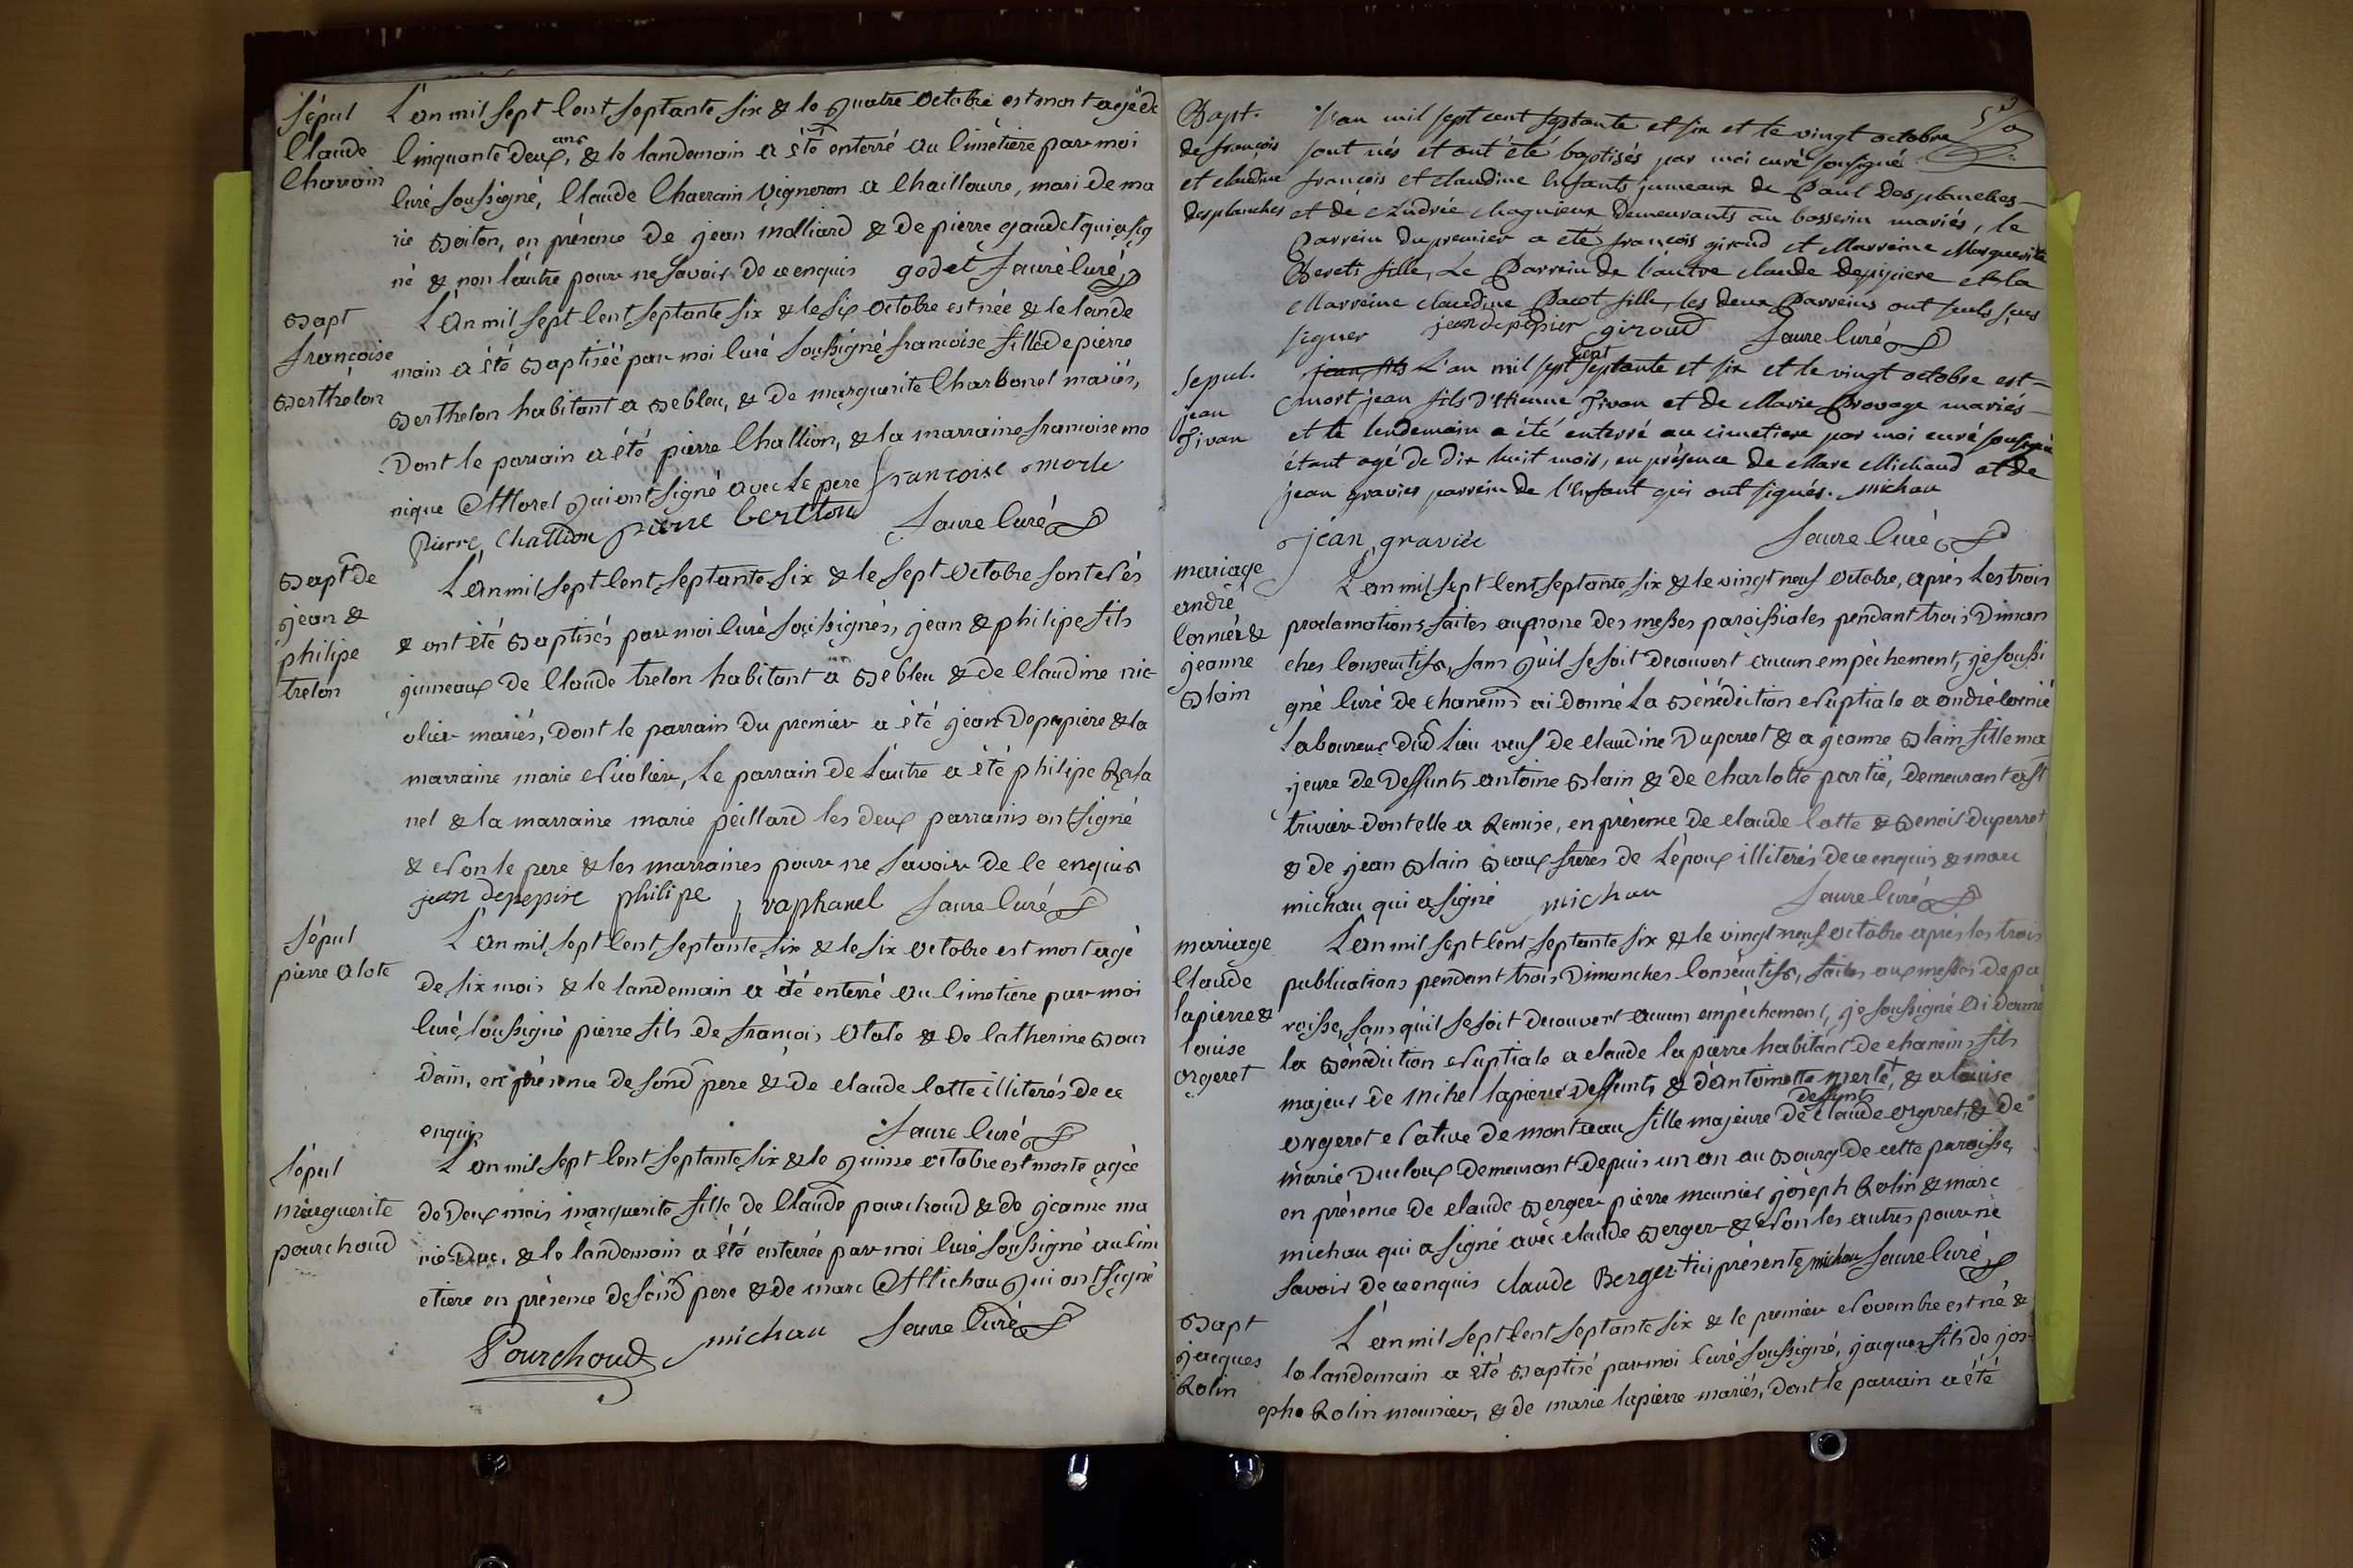 Sépul
Claude
Charrain
L'an mil sept Cent septante six & le quatre octobre est mort agé de
Cinquante deux ans, & le landemain a été enterré au Cimetiere par moi
Curé soussigné, Claude Charrain vigneron a Chaillouvre, mari de ma
rie Boiton, en présence de jean molliard & de pierre gaudet qui a sig
né & non l'autre pour ne savoir de ce enquis godet faure Curé
Bapt
françoise
Berthelon
L'an mil sept Cent septante six & le six octobre est née & le lande
main a été Baptiséé par moi Curé soussigné francoise fille de pierre
Berthelon habitant a Bebleu, & de marguerite Charbonel mariés,
Dont le parrain a été pierre Chattion, & la marraine francoise mo
nique Morel qui ont signé avec le pere francoise morle
pierre Chattion pierre bertton faure Curé
Bapt de
jean &
philipe
trelon
L'an mil sept Cent septante six & le sept octobre sont nés
& ont été Baptisés par moi Curé soussignés, jean & philipe fils
jumeaux de Claude trelon habitant a Bebleu & de Claudine nic-
olier mariés, dont le parrain du premier a été jean Depepiere & la
marraine marie Nicolier, le parrain de l'autre a été philipe Rapha
nel & la marraine marie peillard les deux parrains ont signé
& Non le pere & les marraines pour ne savoir de Ce enquis
jean depepire philipe raphanel faure Curé
Sépul
pierre alote
L'an mil sept Cent septante six & le six octobre est mort agé
de six mois & le landemain a été enterré au Cimetiere par moi
Curé soussigné pierre fils de françois Alote & de Catherine Bour
dain, en présence de son pere & de claude Cotte illiterés de ce
enquis faure Curé
Sépul
marguerite
pourchoud
L'an mil sept Cent septante six & le quinse octobre est morte agée
de Deux mois marguerite fille de Claude pourchoud & de jeanne ma
rie Duc, & le landemain a été enterrée par moi Curé soussigné au Cim
etiere en présence de son pere & de marc Michau qui ont signé
Pourchoud michau faure Curé
Bapt.
de françois
et claudine
desplanches
L'an mil sept cent septante et six et le vingt octobre
sont nés et ont été baptisés par moi curé sousigné
françois et claudine Enfants jumeaux de Paul Desplanches
et de Andrée Chagnieux Demeurants au bosserin mariés, le
Parrein du premier a eté françois giroud et Marreine Marguerite
Berets fille, Le Parrein de l'autre claude Depipiere et la
Marreine claudine Pacot fille, les deux Parreins ont seuls sçus
signer jean depepier giroud faure Curé
Sepul.
jean
Tivan
jean fils L'an mil sept cent septante et six et le vingt octobre est
mort jean fils D'Etienne Tivan et de Marie Provage mariés
et le lendemain a été enterré au cimetiere par moi curé sousigné
étant agé de Dix huit mois, en présence de Marc Michaud et de
jean gravier parrein de l'Enfant qui ont signés. michau
jean graviée faure Curé
mariage
andré
Cornier &
jeanne
Blain
L'an mil sept Cent septante six & le vingt neuf octobre, après Les trois
proclamations faites au prone des messes paroissiales pendant trois Diman
ches Consecutifs, sans qu'il se soit decouvert aucun empêchement, je soussi
gné Curé de chaneins ai donné La Bénédiction Nuptiale a andré Cornié
Laboureur dud Lieu veuf de claudine Duperret & a jeanne Blain fille ma
jeure de Deffunts antoine Blain & de Charlotte partié, demeurant a st
trivier dont elle a Remise, en présence de claude Cotte & Benoit duperret
& de jean Blain Beaux freres de L'époux illiterés de ce enquis & marc
michau qui a signé michau faure Curé
mariage
Claude
lapierre &
louise
orgeret
L'an mil sept Cent septante six & le vingt neuf octobre après les trois
publications pendant trois Dimanches Consécutifs, faites aux messes de pa
roisse, sans qu'il se soit decouvert aucun empêchement, je soussigné ai donné
la Bénédiction Nuptiale a claude la pierre habitant de chaneins fils
majeur de michel lapierre Deffunts & d'antoinette merle+, & a louise
orgeret Native de montceau fille majeure de deffunts Claude orgeret & de
marie Ducloux demeurant depuis un an au Bourg de cette paroisse,
en présence de claude Berger pierre meunier joseph Rolin & marc
michau qui a signé avec claude Berger & Non les autres pour ne
savoir de ce enquis Claude Berger +ici présente michau faure Curé
Bapt
jacques
Rolin
L'an mil sept Cent septante six & le premier Novembre est né &
le landemain a été Baptisé par moi Curé soussigné, jacques fils de jos-
eph Rolin meunier, & de marie lapierre mariés, dont le parrain a été